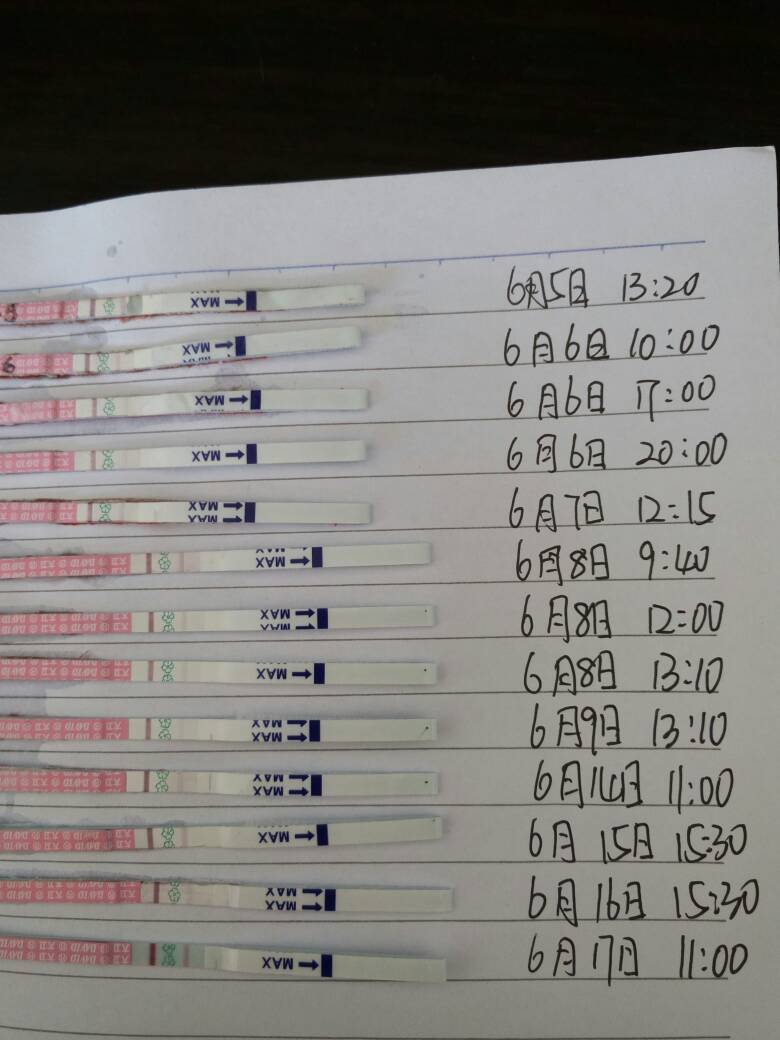 MAX 6月5日 13:20
6 MAX 6月6日 10:00
MAX 6月6日 17:00
MAX 6月6日 20:00
MAX MAX 6月7日 12:15
MAX 6月8日 9:40
MAX 6月8日 12:00
MAX 6月8日 13:10
MAX MAX 6月9日 13:10
MAX MAX 6月14日 11:00
MAX 6月15日 15:30
MAX MAX 6月16日 15:30
MAX 6月17日 11:00